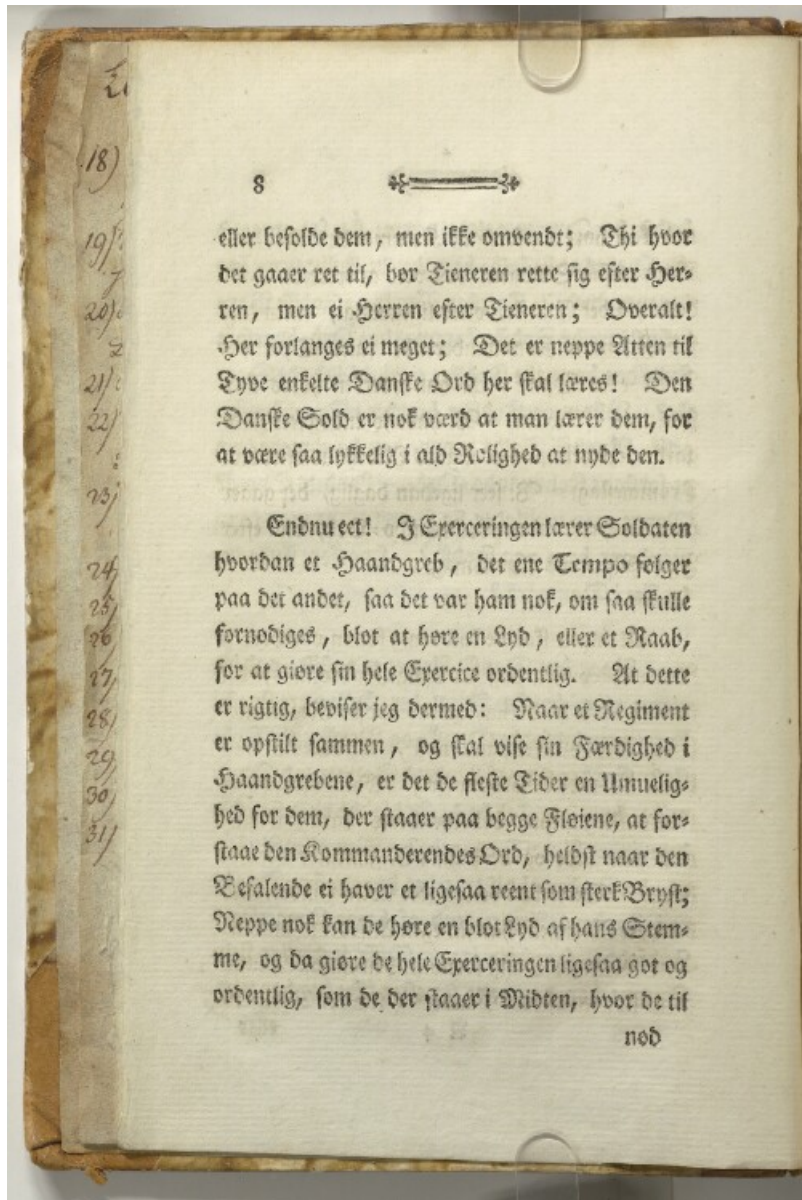 18)
19)
20)
21)
22)
23)
24)
25)
26)
27)
28)
29)
30)
31)
8
eller besolde dem, men ikke omvendt; Thi hvor
det gaaer ret til, bør Tieneren rette sig efter Her-
ren, men ei Herren efter Tieneren; Overalt!
Her forlanges ei meget; Det er neppe Atten til
Tyve enkelte Danske Ord her skal læres! Den
Danske Sold er nok værd at man lærer dem, for
at være saa lykkelig i ald Rolighed at nyde den.
Endnu eet! I Exerceringen lærer Soldaten
hvordan et Haandgreb, det ene Tempo følger
paa det andet, saa det var ham nok, om saa skulle
fornødiges, blot at høre en Lyd, eller et Raab,
for at giøre sin hele Exercice ordentlig. At dette
er rigtig, beviser jeg dermed: Naar et Regiment
er opstilt sammen, og skal vise sin Færdighed i
Haandgrebene, er det de fleste Tider en Umuelig-
hed for dem, der staaer paa begge Fløiene, at for-
staae den Kommanderendes Ord, heldst naar den
Befalende ei haver et ligesaa reent som sterk Bryst;
Neppe nok kan de høre en blot Lyd af hans Stem-
me, og da giøre de hele Exerceringen ligesaa got og
ordentlig, som de der staaer i Midten, hvor de til
nød